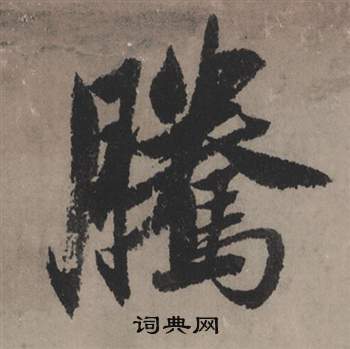 騰
词典网